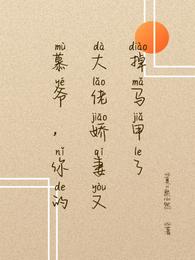 mù yé , nǐ de
慕爷，你的
dà lǎo jiāo qī yòu
大佬娇妻又
diào mǎ jiǎ le
掉马甲了
著